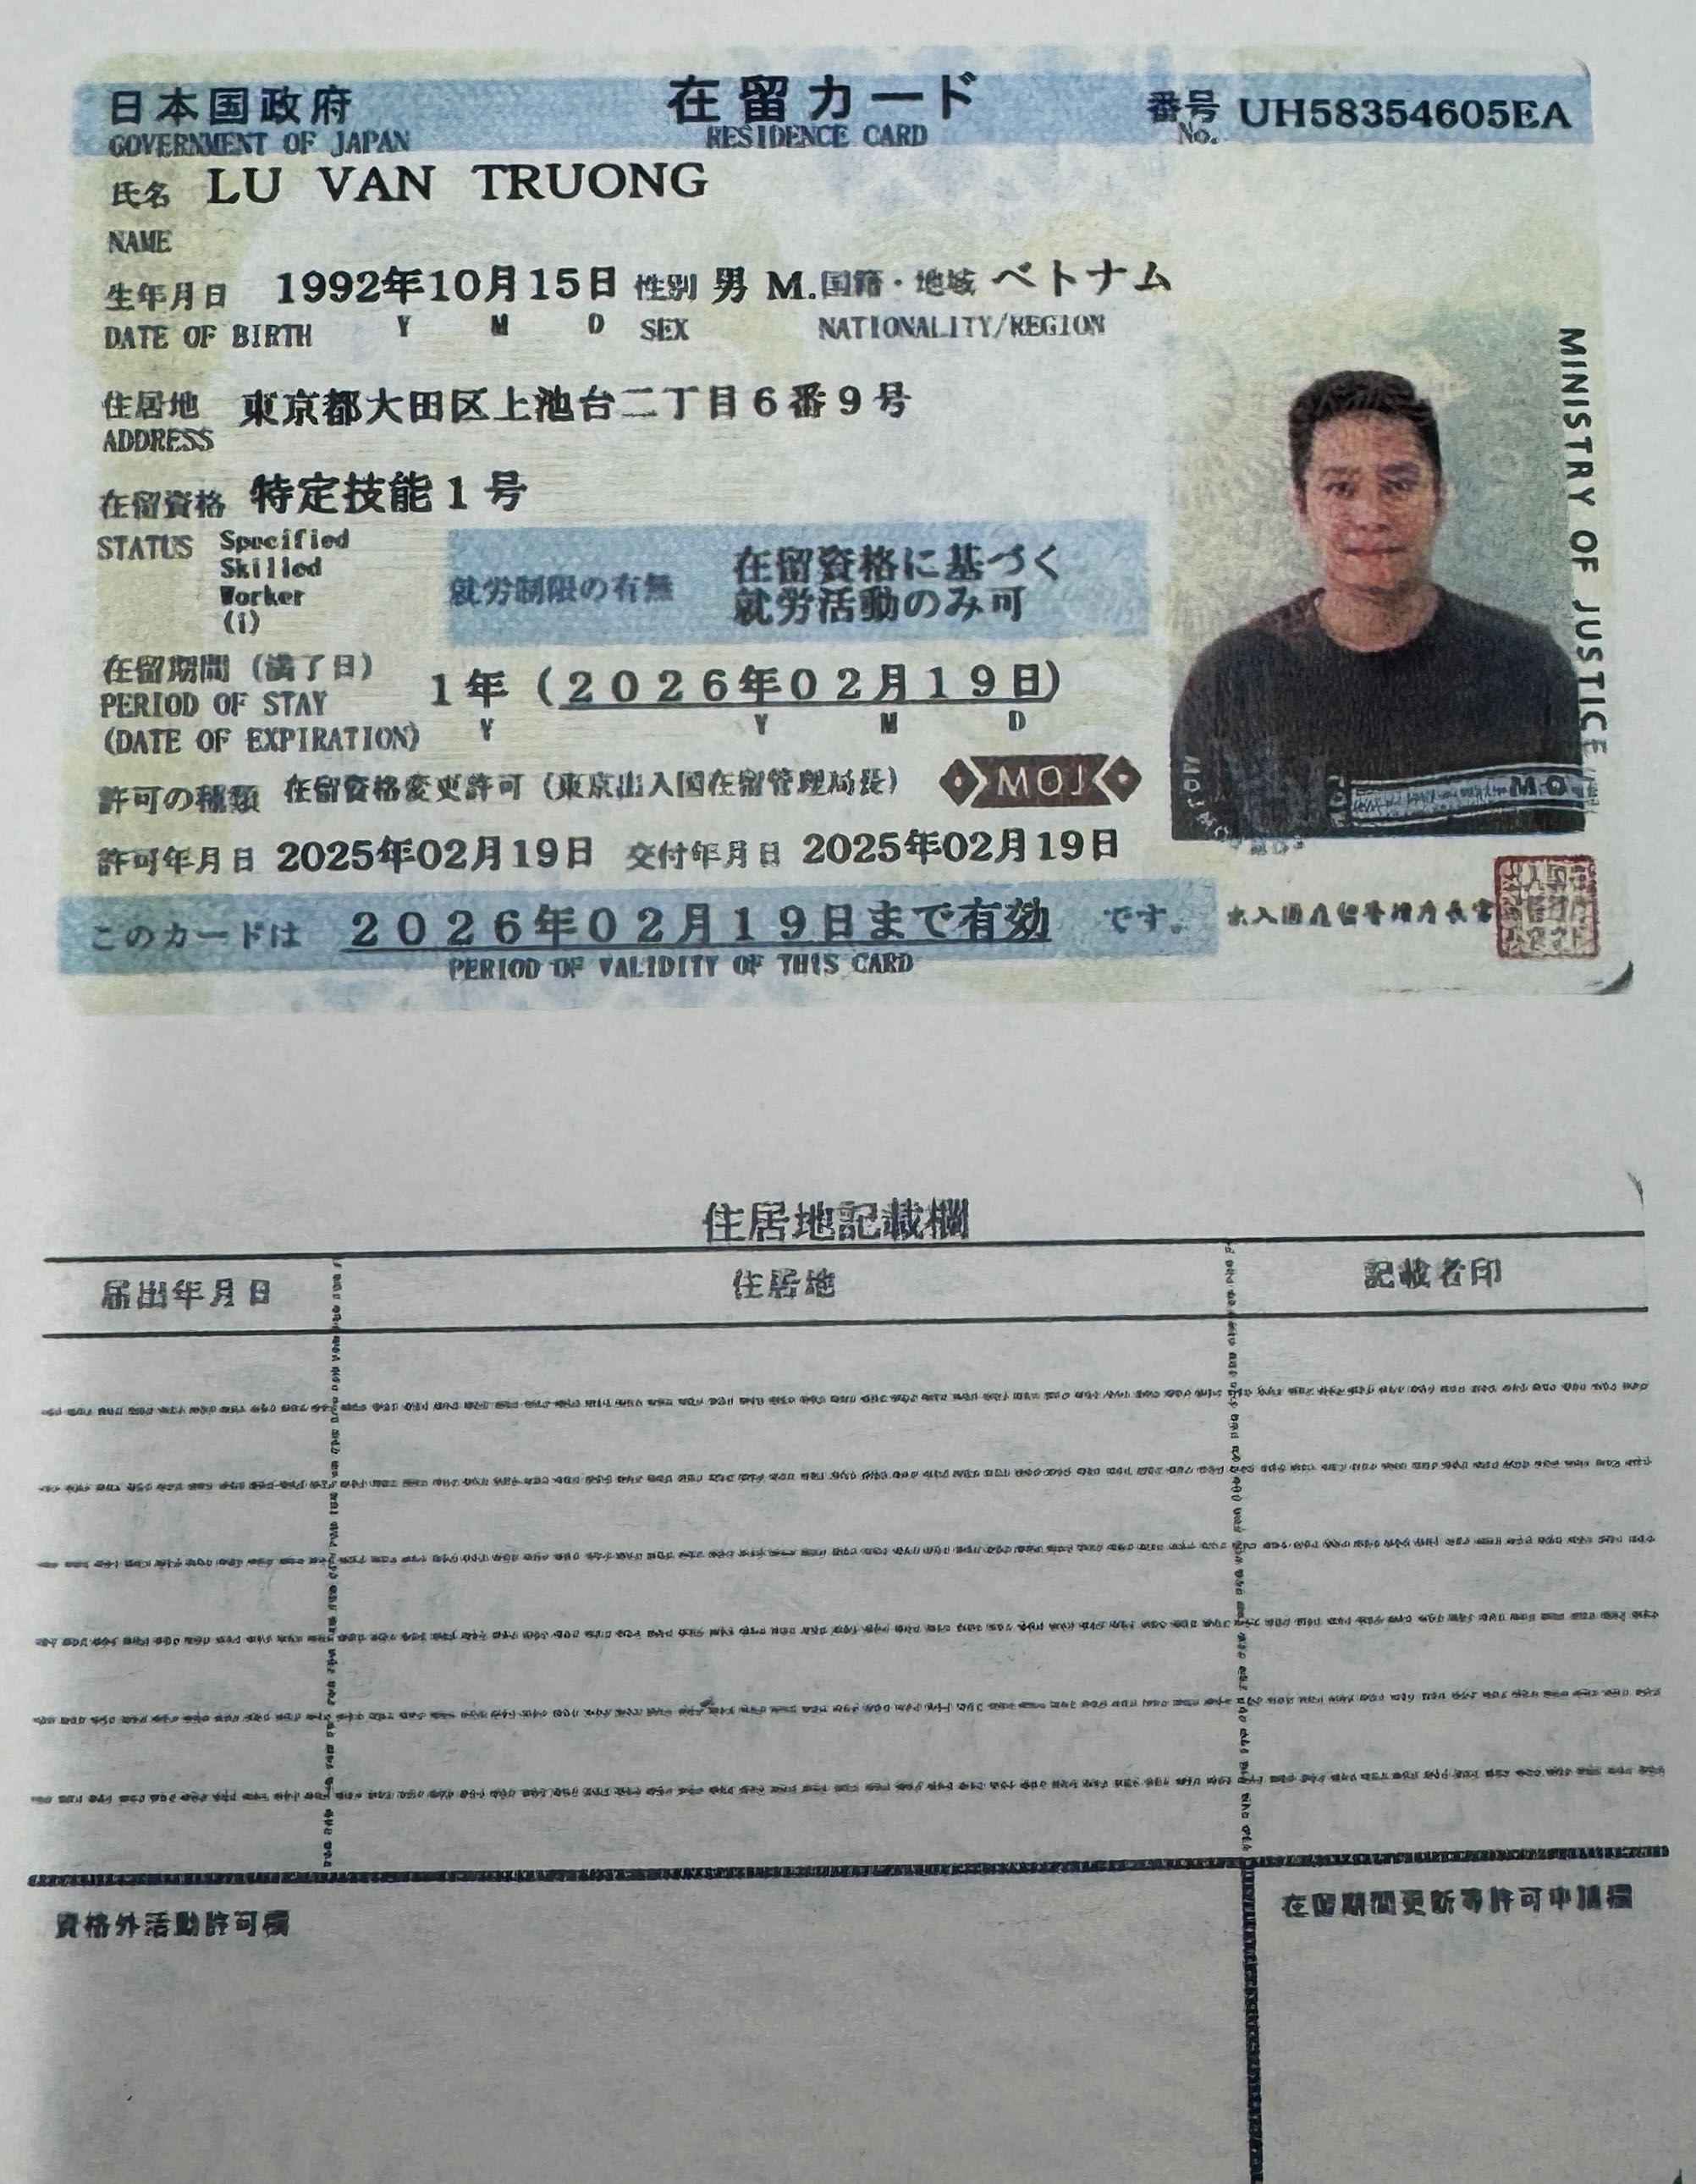 日本国政府 在留カード 番号 UH58354605EA
GOVERNMENT OF JAPAN RESIDENCE CARD No.
氏名 LU VAN TRUONG
NAME
生年月日 1992年10月15日 性別 男 M. 国籍・地域 ベトナム
DATE OF BIRTH Y M D SEX NATIONALITY/REGION
住居地 東京都大田区上池台二丁目6番9号
ADDRESS
在留資格 特定技能1号
STATUS Specified
Skilled
Worker
(i)
就労制限の有無 在留資格に基づく
就労活動のみ可
在留期間(満了日)
PERIOD OF STAY 1年(2026年02月19日)
(DATE OF EXPIRATION) Y Y M D
許可の種類 在留資格変更許可(東京出入国在留管理局長) MOJ
許可年月日 2025年02月19日 交付年月日 2025年02月19日
このカードは 2026年02月19日まで有効 です。
PERIOD OF VALIDITY OF THIS CARD
MINISTRY OF JUSTICE
住居地記載欄
届出年月日 住居地 記載者印
資格外活動許可欄 在留期間更新等許可申請欄